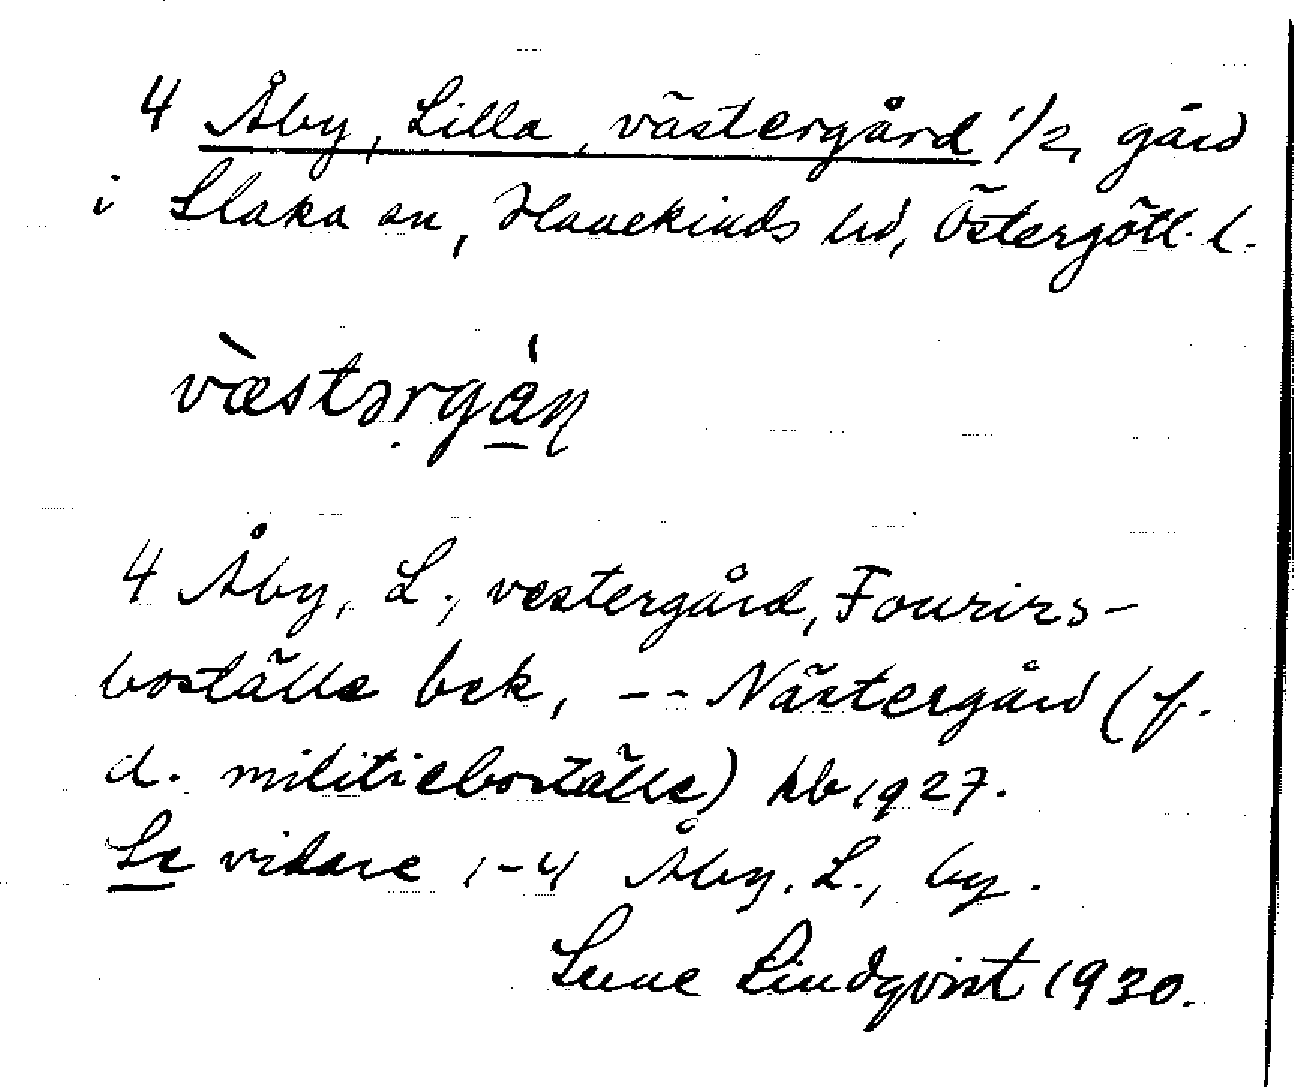 4 Åby, Lilla, västergård 1/2 gård
i Slaka sn, Hanekinds hd, Östergötl. l.
væ̀stərgá̱ɳ
4 Åby, L., vestergård, Fourirs-
boställe bek, -- Västergård (f.
d. militieboställe) hb 1927.
Se vidare 1-4 Åby, L., by.
Sune Lindqvist 1930.